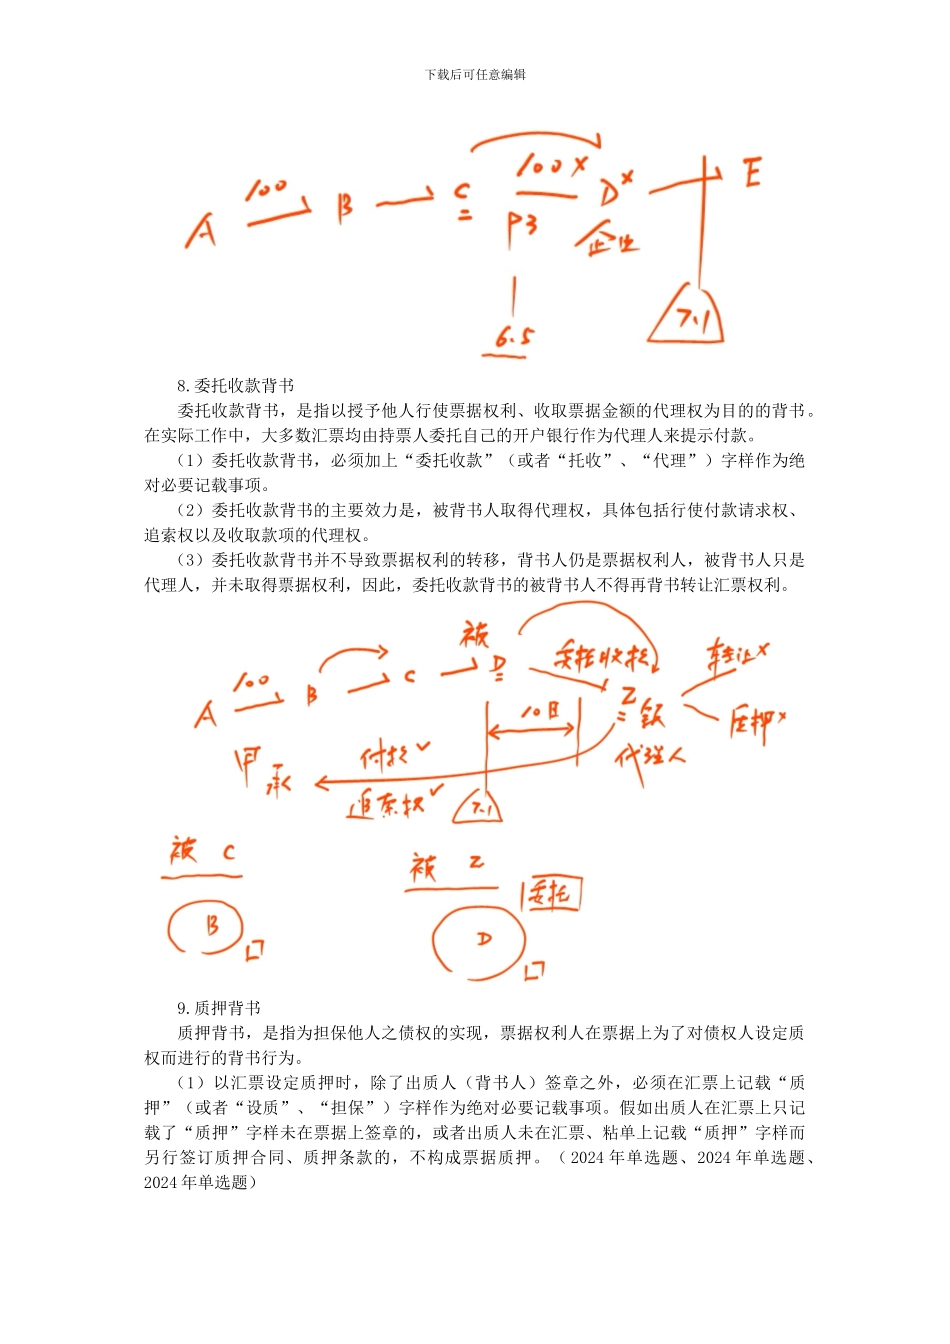 下载后可任意编辑
A 100 B C 100 × D × E
P3 企业
6.5 7.1
8.委托收款背书
委托收款背书，是指以授予他人行使票据权利、收取票据金额的代理权为目的的背书。
在实际工作中，大多数汇票均由持票人委托自己的开户银行作为代理人来提示付款。
（1）委托收款背书，必须加上“委托收款”（或者“托收”、“代理”）字样作为绝
对必要记载事项。
（2）委托收款背书的主要效力是，被背书人取得代理权，具体包括行使付款请求权、
追索权以及收取款项的代理权。
（3）委托收款背书并不导致票据权利的转移，背书人仍是票据权利人，被背书人只是
代理人，并未取得票据权利，因此，委托收款背书的被背书人不得再背书转让汇票权利。
被 委托收款 转让×
A 100 B C D Z 银
10日 质押×
甲 承 付款✓ 代理人
追索权✓ 7.1
被 C 被 Z
委托
B D
9.质押背书
质押背书，是指为担保他人之债权的实现，票据权利人在票据上为了对债权人设定质
权而进行的背书行为。
（1）以汇票设定质押时，除了出质人（背书人）签章之外，必须在汇票上记载“质
押”（或者“设质”、“担保”）字样作为绝对必要记载事项。假如出质人在汇票上只记
载了“质押”字样未在票据上签章的，或者出质人未在汇票、粘单上记载“质押”字样而
另行签订质押合同、质押条款的，不构成票据质押。（2024 年单选题、2024 年单选题、
2024 年单选题）